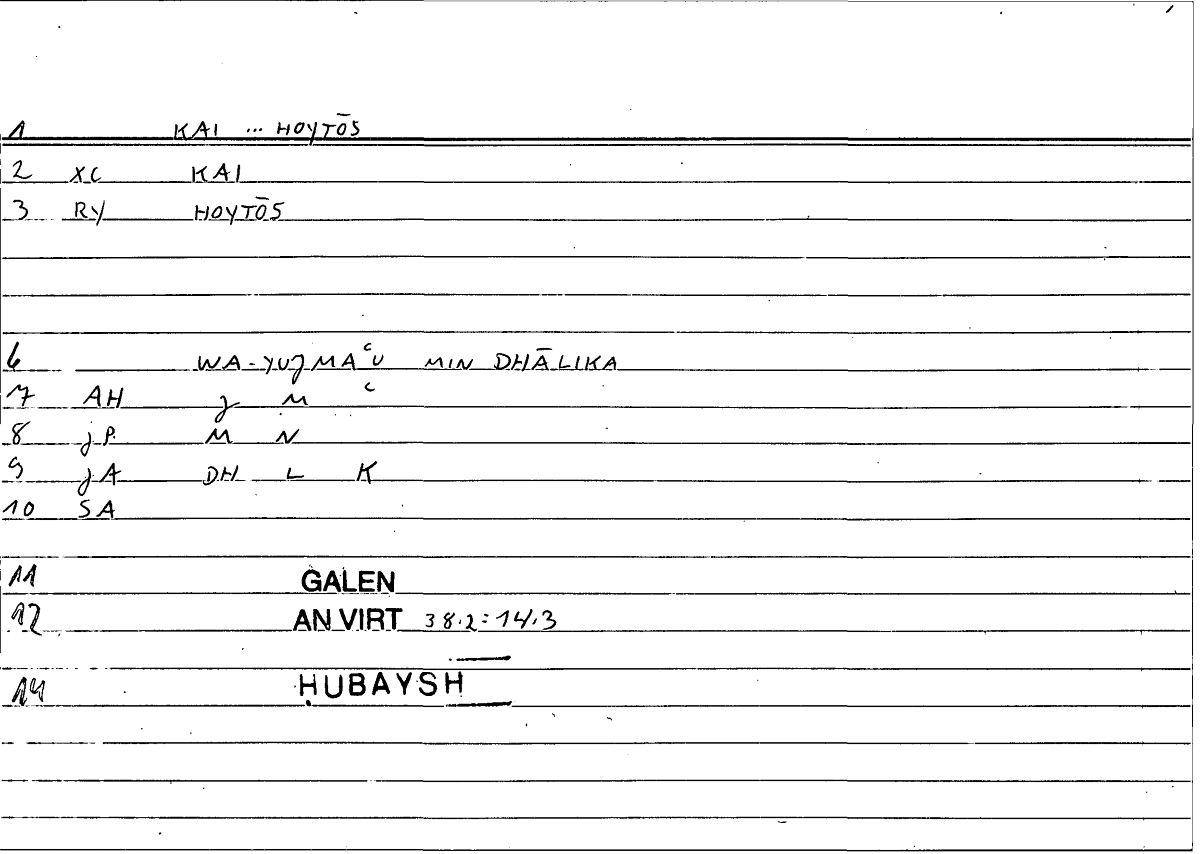 1 KAI ... HOYTŌS
2 XC KAI
3 RY HOYTŌS
6 WA-YUJMAʿU MIN DHĀLIKA
7 AH J M ʿ
8 JP. M N
9 JA DH L K
10 SA
11 GALEN
12 AN VIRT 38.2 : 14.3
14 ḤUBAYSH